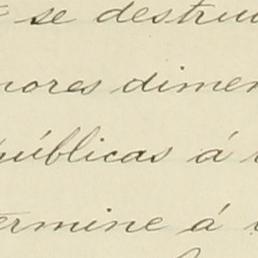 se destru
nores dimen
públicas á
ermine á